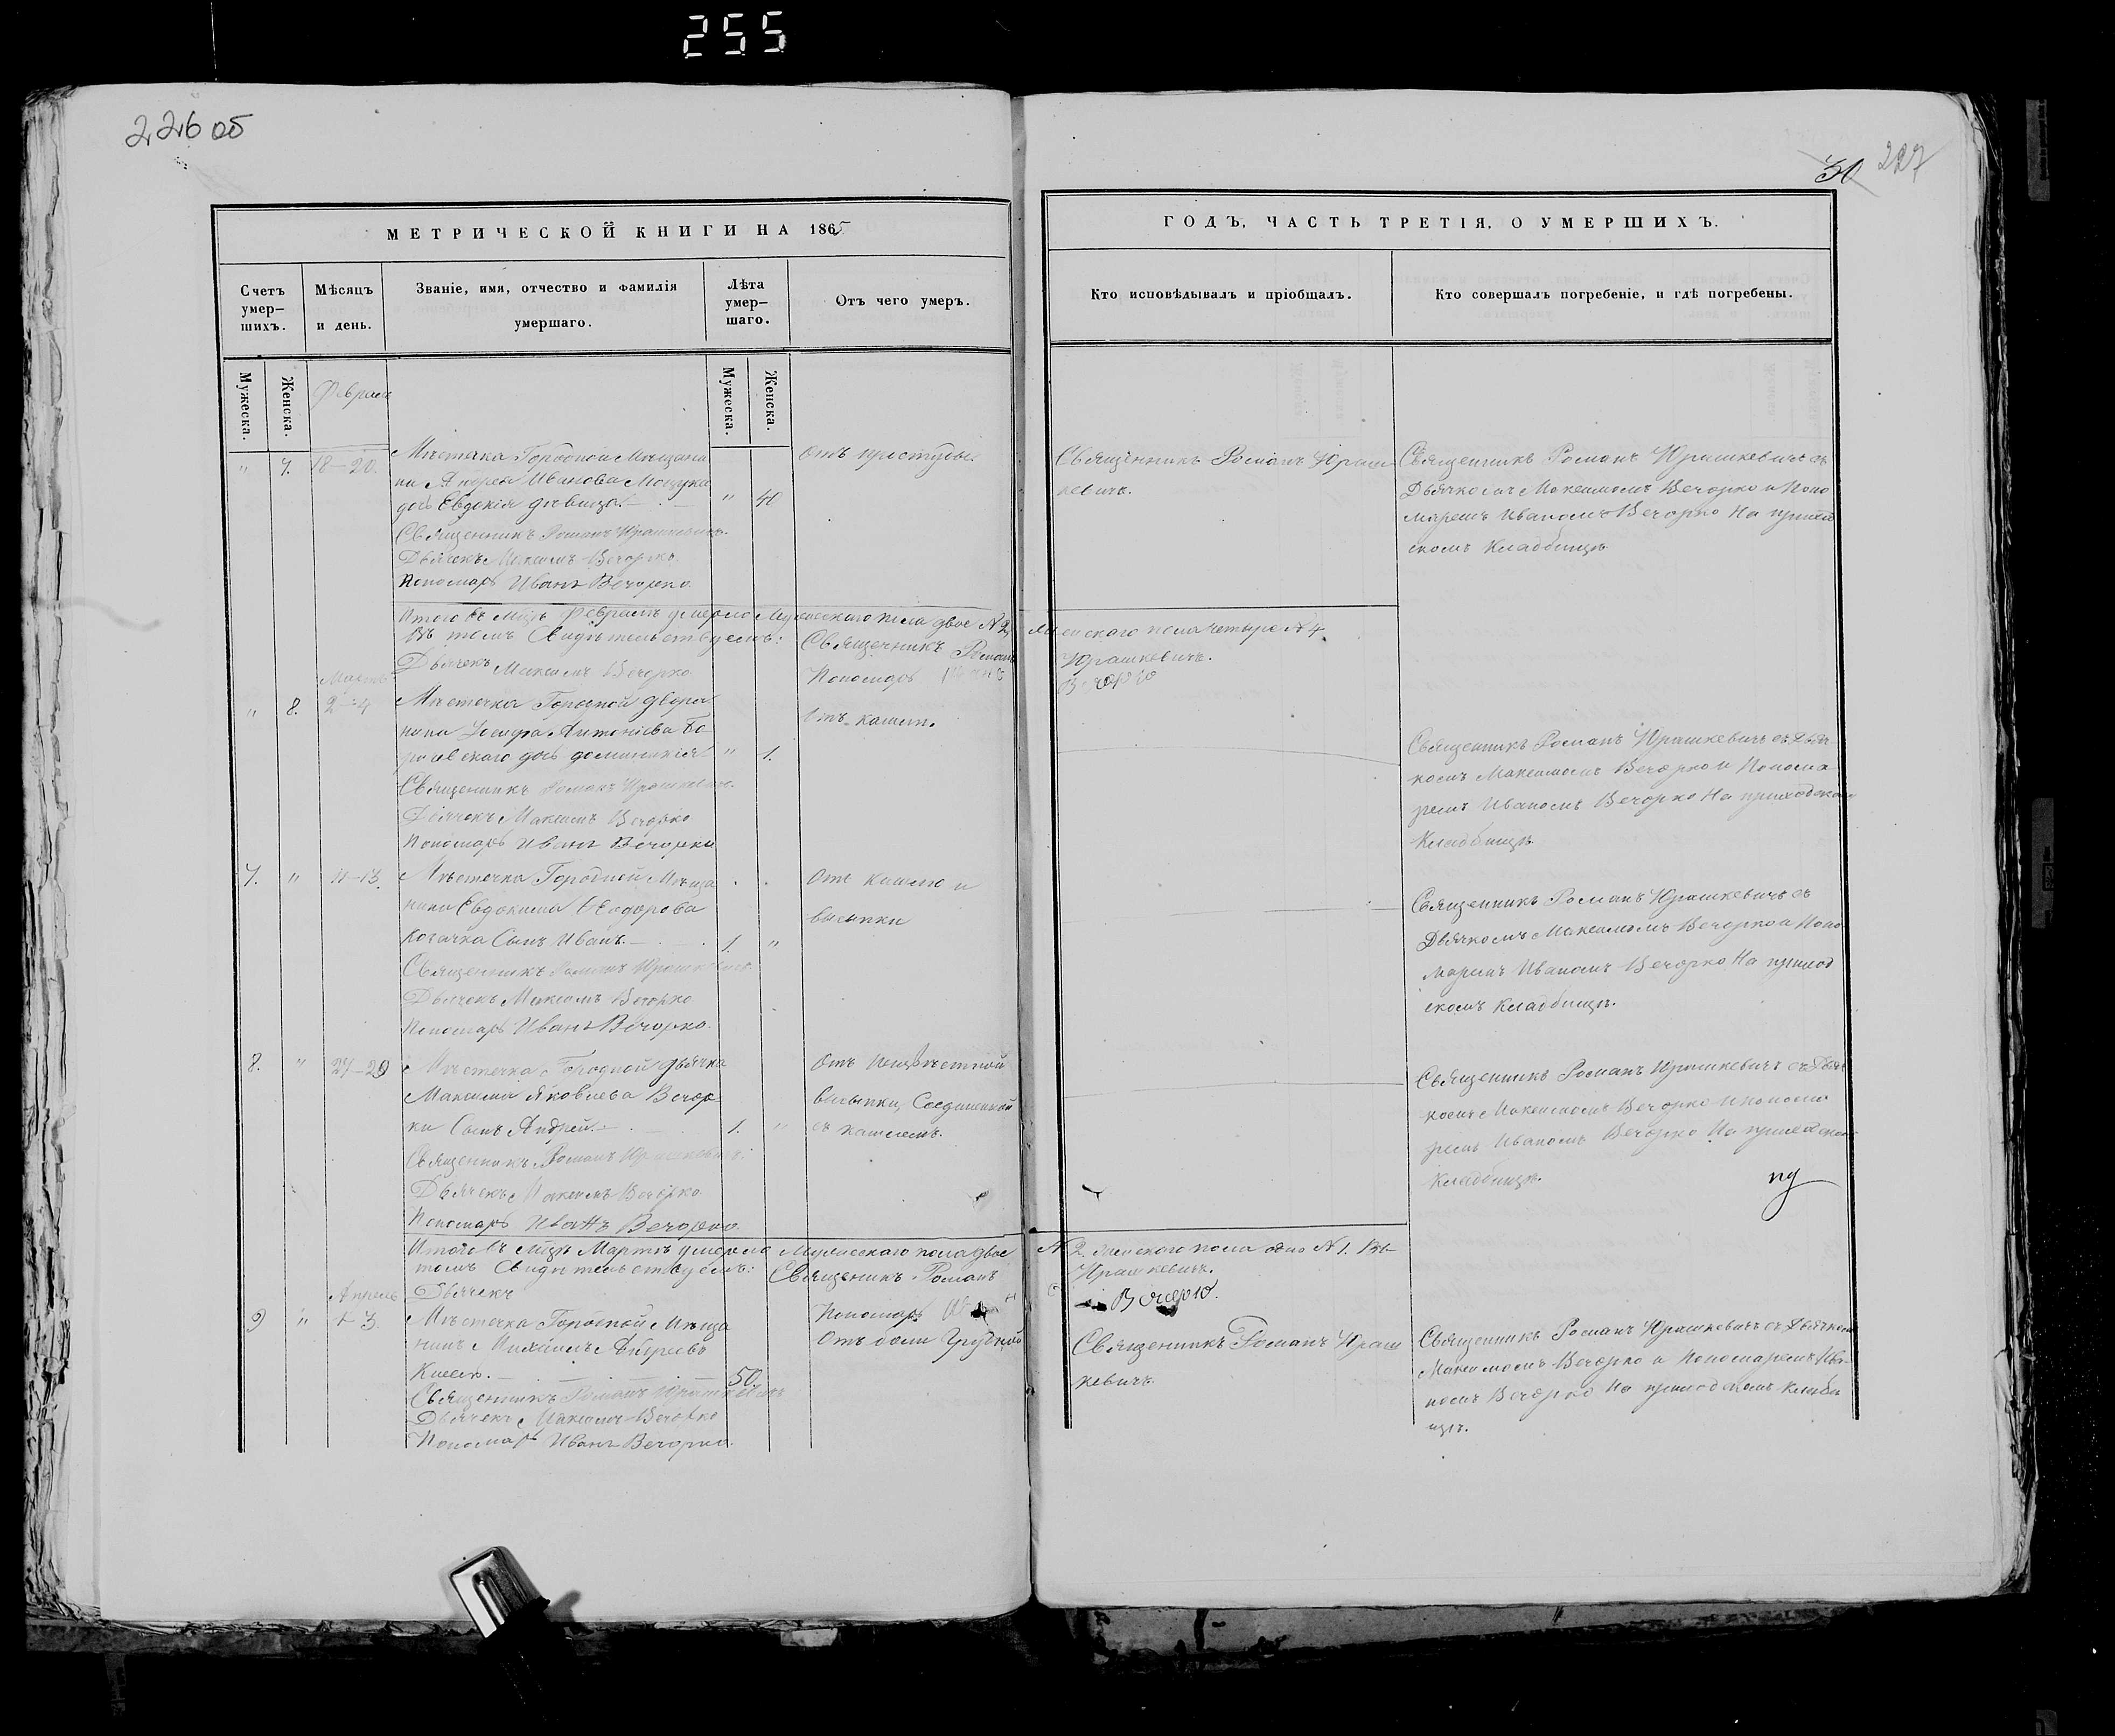 255
226 об
30 227
МЕТРИЧЕСКОЙ КНИГИ НА 1865
Счетъ умер–шихъ.
Мѣсяцъ и день.
Званіе, имя, отчество и фамилія умершаго.
Лѣта умер–шаго.
Отъ чего умеръ.
Мужеска.
Женска.
Мужеска.
Женска.
ГОДЪ, ЧАСТЬ ТРЕТІЯ, О УМЕРШИХЪ.
Кто исповѣдывалъ и пріобщалъ.
Кто совершалъ погребеніе, и гдѣ погребены.
" 7. 18–20.
Мѣстечка Городной Мѣщани
на Андрея Иванова Мощука
дочь Евдокія дѣвица. "
Священникъ Романъ Юрашкевичъ.
Дьячекъ Максимъ Вечорко
Пономарь Иванъ Вечорко
Отъ простуды
Священникъ Романъ Юраш
кевичъ.
Священникъ Романъ Юрашкевичъ съ
Дьячкомъ Максимомъ Вечорко и Поно
маремъ Иваномъ Вечорко На приход
скомъ Кладбищѣ
Итого въ мцѣ Февралѣ умерло Мужескаго пола двое N 2, женскаго пола четыре N 4.
Въ томъ Свидѣтельствуемъ: Священникъ Романъ Юрашкевичъ.
Дьячекъ Максимъ Вечорко Пономарь
Мартъ
" 8. 2–4
Мѣстечка Городной Дворя
нина Іосифа Антоніева
дочь " 1.
Священникъ Романъ Юрашкевичъ.
Дьячекъ Максимъ Вечорко
Пономарь Иванъ Вечорко
Отъ кашля.
Священникъ Романъ Юрашкевичъ съ Дьяч
комъ Максимомъ Вечорко и Понома
ремъ Иваномъ Вечорко На приходском
Кладбищѣ
7. " 11–13.
Мѣстечка Городной Мѣща
нина Евдокима Ѳеодорова
Сынъ Иванъ. 1. "
Священникъ Романъ Юрашкевичъ.
Дьячекъ Максимъ Вечорко
Пономарь Иванъ Вечорко.
Отъ кашлю и
высыпки
Священникъ Романъ Юрашкевичъ съ
Дьячкомъ Максимомъ Вечорко и Поно
маремъ Иваномъ Вечорко На приход
скомъ Кладбищѣ.
8. " 27–29
Мѣстечка Городной Дьячка
Максима Яковлева Вечор
ки Сынъ Андрей. 1. "
Священникъ Романъ Юрашкевичъ.
Дьячекъ Максимъ Вечорко
Пономарь Иванъ Вечорко.
Отъ
высыпки, Соединенной
съ кашлемъ.
Священникъ Романъ Юрашкевичъ съ Дьяч
комъ Максимомъ Вечорко и Понома
ремъ Иваномъ Вечорко На приходском
Кладбищѣ.
Итого въ мцѣ Мартѣ умерло Мужескаго пола двое N 2. женскаго пола одно N 1. Въ
томъ Свидѣтельствуемъ: Священникъ Романъ Юрашкевичъ.
Дьячекъ
Пономарь
Апрель
9 "
Мѣстечка Городной Мѣща
нинъ Михаилъ
50.
Священникъ Романъ Юрашкевичъ
Дьячекъ Максимъ Вечорко
Пономарь Иванъ Вечорко.
Отъ боли грудной
Священникъ Романъ Юраш
кевичъ
Священникъ Романъ Юрашкевичъ съ Дьячкомъ
Максимомъ Вечорко и Пономаремъ Ива
номъ Вечорко На приходскомъ Кладби
щѣ.